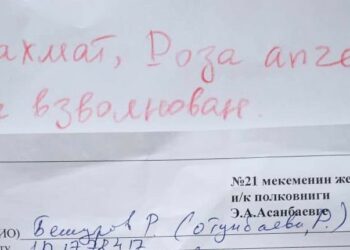 ахмат, Роза апче
взволнован.
№21 мекеменин же
и/к полковниги
Э.А.Асанбаевге
ИО) Бешуров Р. (Отунбаева, Р.)